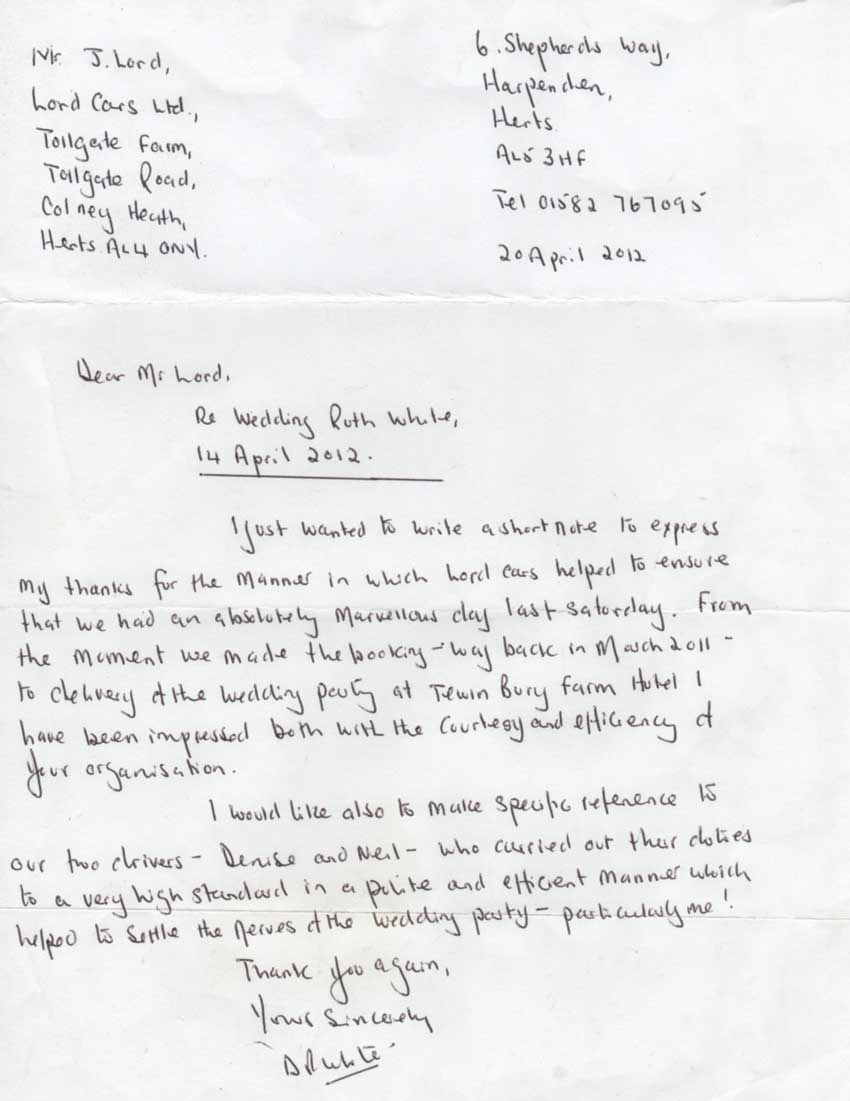 Mr. J. Lord,
Lord Cars Ltd.,
Tollgate Farm,
Tollgate Road,
Colney Heath,
Herts AL4 0NY.
6. Shepherds Way,
Harpenden,
Herts
AL5 3HF
Tel 01582 767095
20 April 2012
Dear Mr Lord,
Re Wedding Ruth White,
14 April 2012.
I just wanted to write a short note to express
my thanks for the manner in which Lord cars helped to ensure
that we had an absolutely marvellous day last Saturday. From
the moment we made the booking - way back in March 2011 -
to delivery of the wedding party at Tewin Bury Farm Hotel I
have been impressed both with the courtesy and efficiency of
your organisation.
I would like also to make specific reference to
our two drivers - Denise and Neil - who carried out their duties
to a very high standard in a polite and efficient manner which
helped to settle the nerves of the wedding party - particularly me!
Thank you again,
Yours Sincerely
D R White